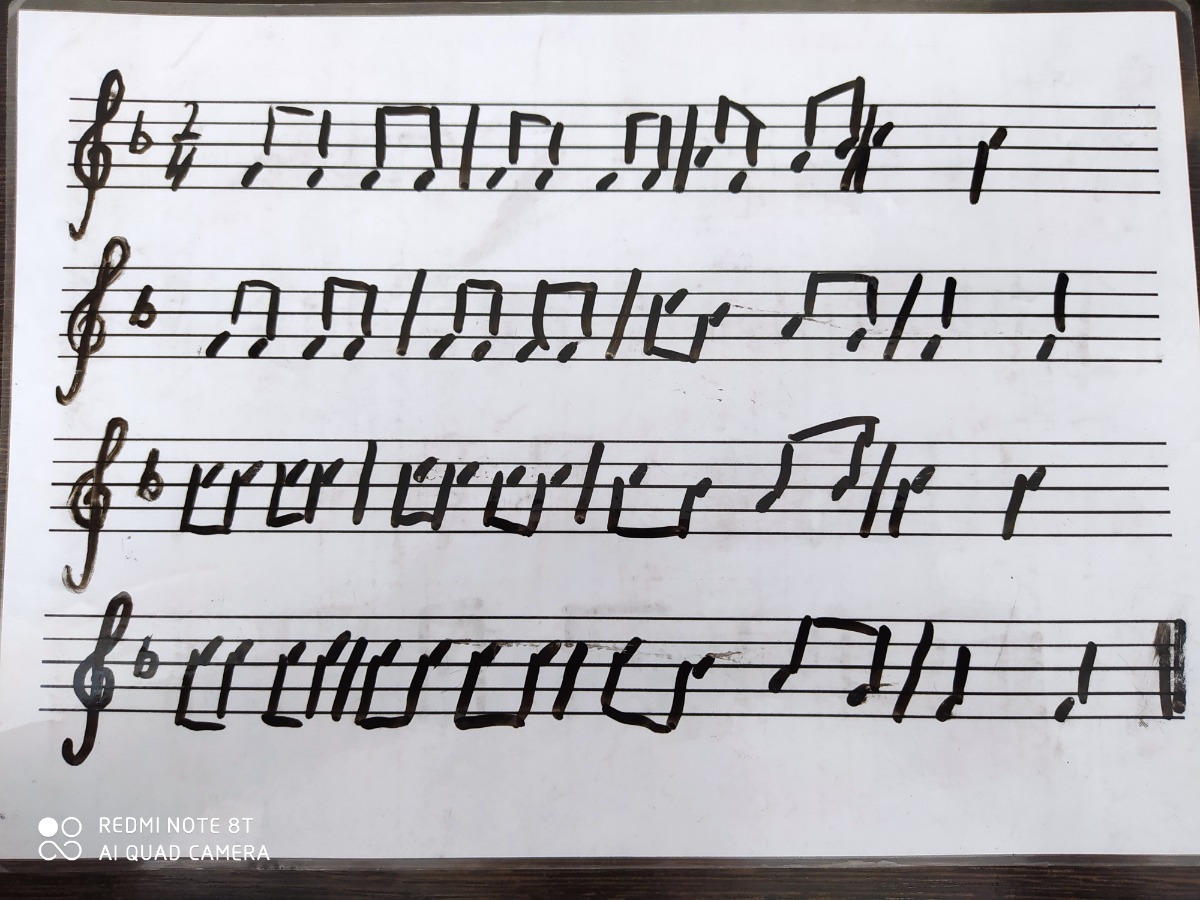 2
4
REDMI NOTE 8T
AI QUAD CAMERA